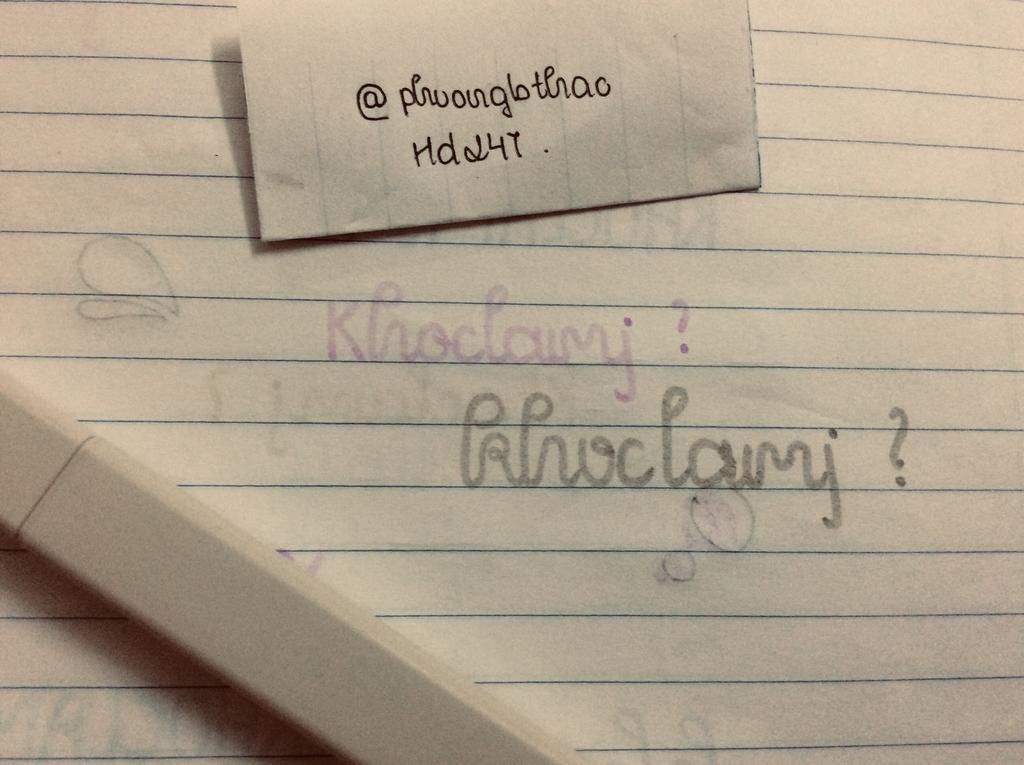 @phuongbthao
Hd247.
Khoclamj ?
khoclamj ?